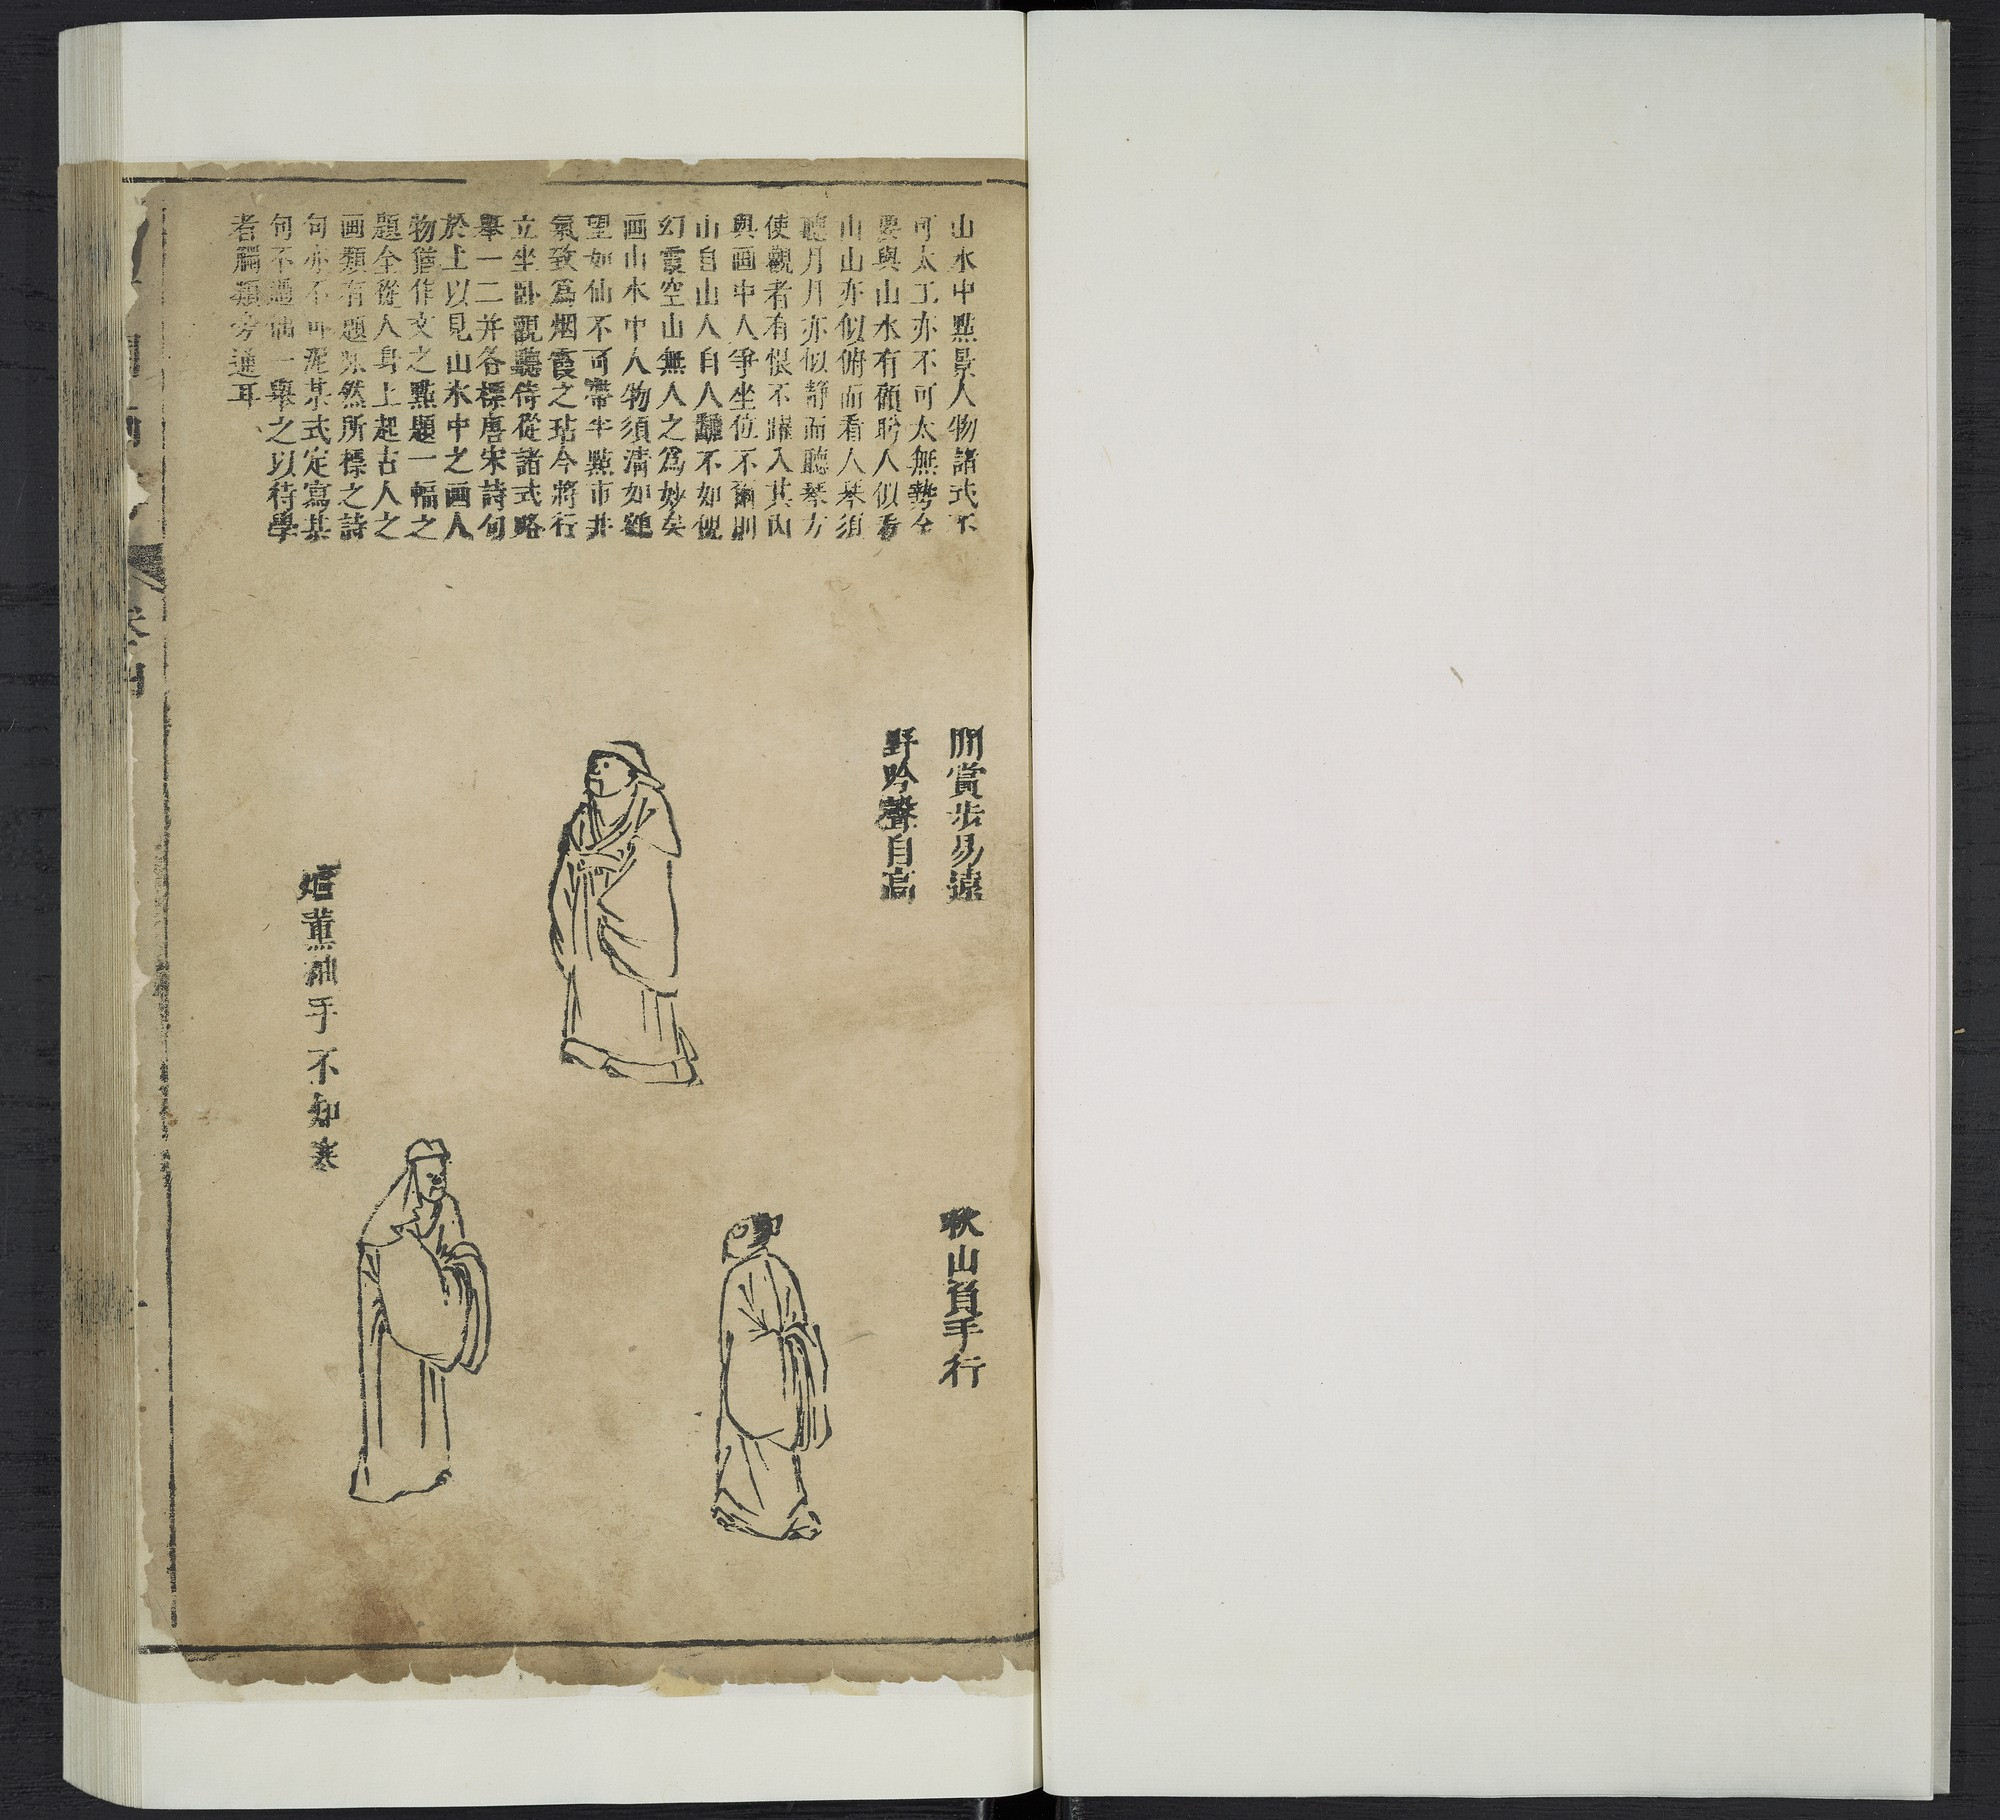 山水中點景人物諸式不
可太工亦不可太無勢全
要與山水有顧盼人似看
山山亦似俯而看人琴須
聽月月亦似靜而聽琴方
使觀者有恨不躍入其內
與画中人爭坐位不爾則
山自山人自人翻不如倪
幻霞空山無人之爲妙矣
画山水中人物須清如鶴
望如仙不可帶半點市井
氣致爲烟霞之玷今將行
立坐卧觀聽侍從諸式略
舉一二并各標唐宋詩句
於上以見山水中之画人
物猶作文之點題一幅之
題全從人身上起古人之
画類有題咏然所標之詩
句亦不可泥某式定寫某
句不過偶一舉之以待學
者觸類旁通耳
閒賞步易遠
野吟聲自高
秋山負手行
薰袖手不知寒
卷四